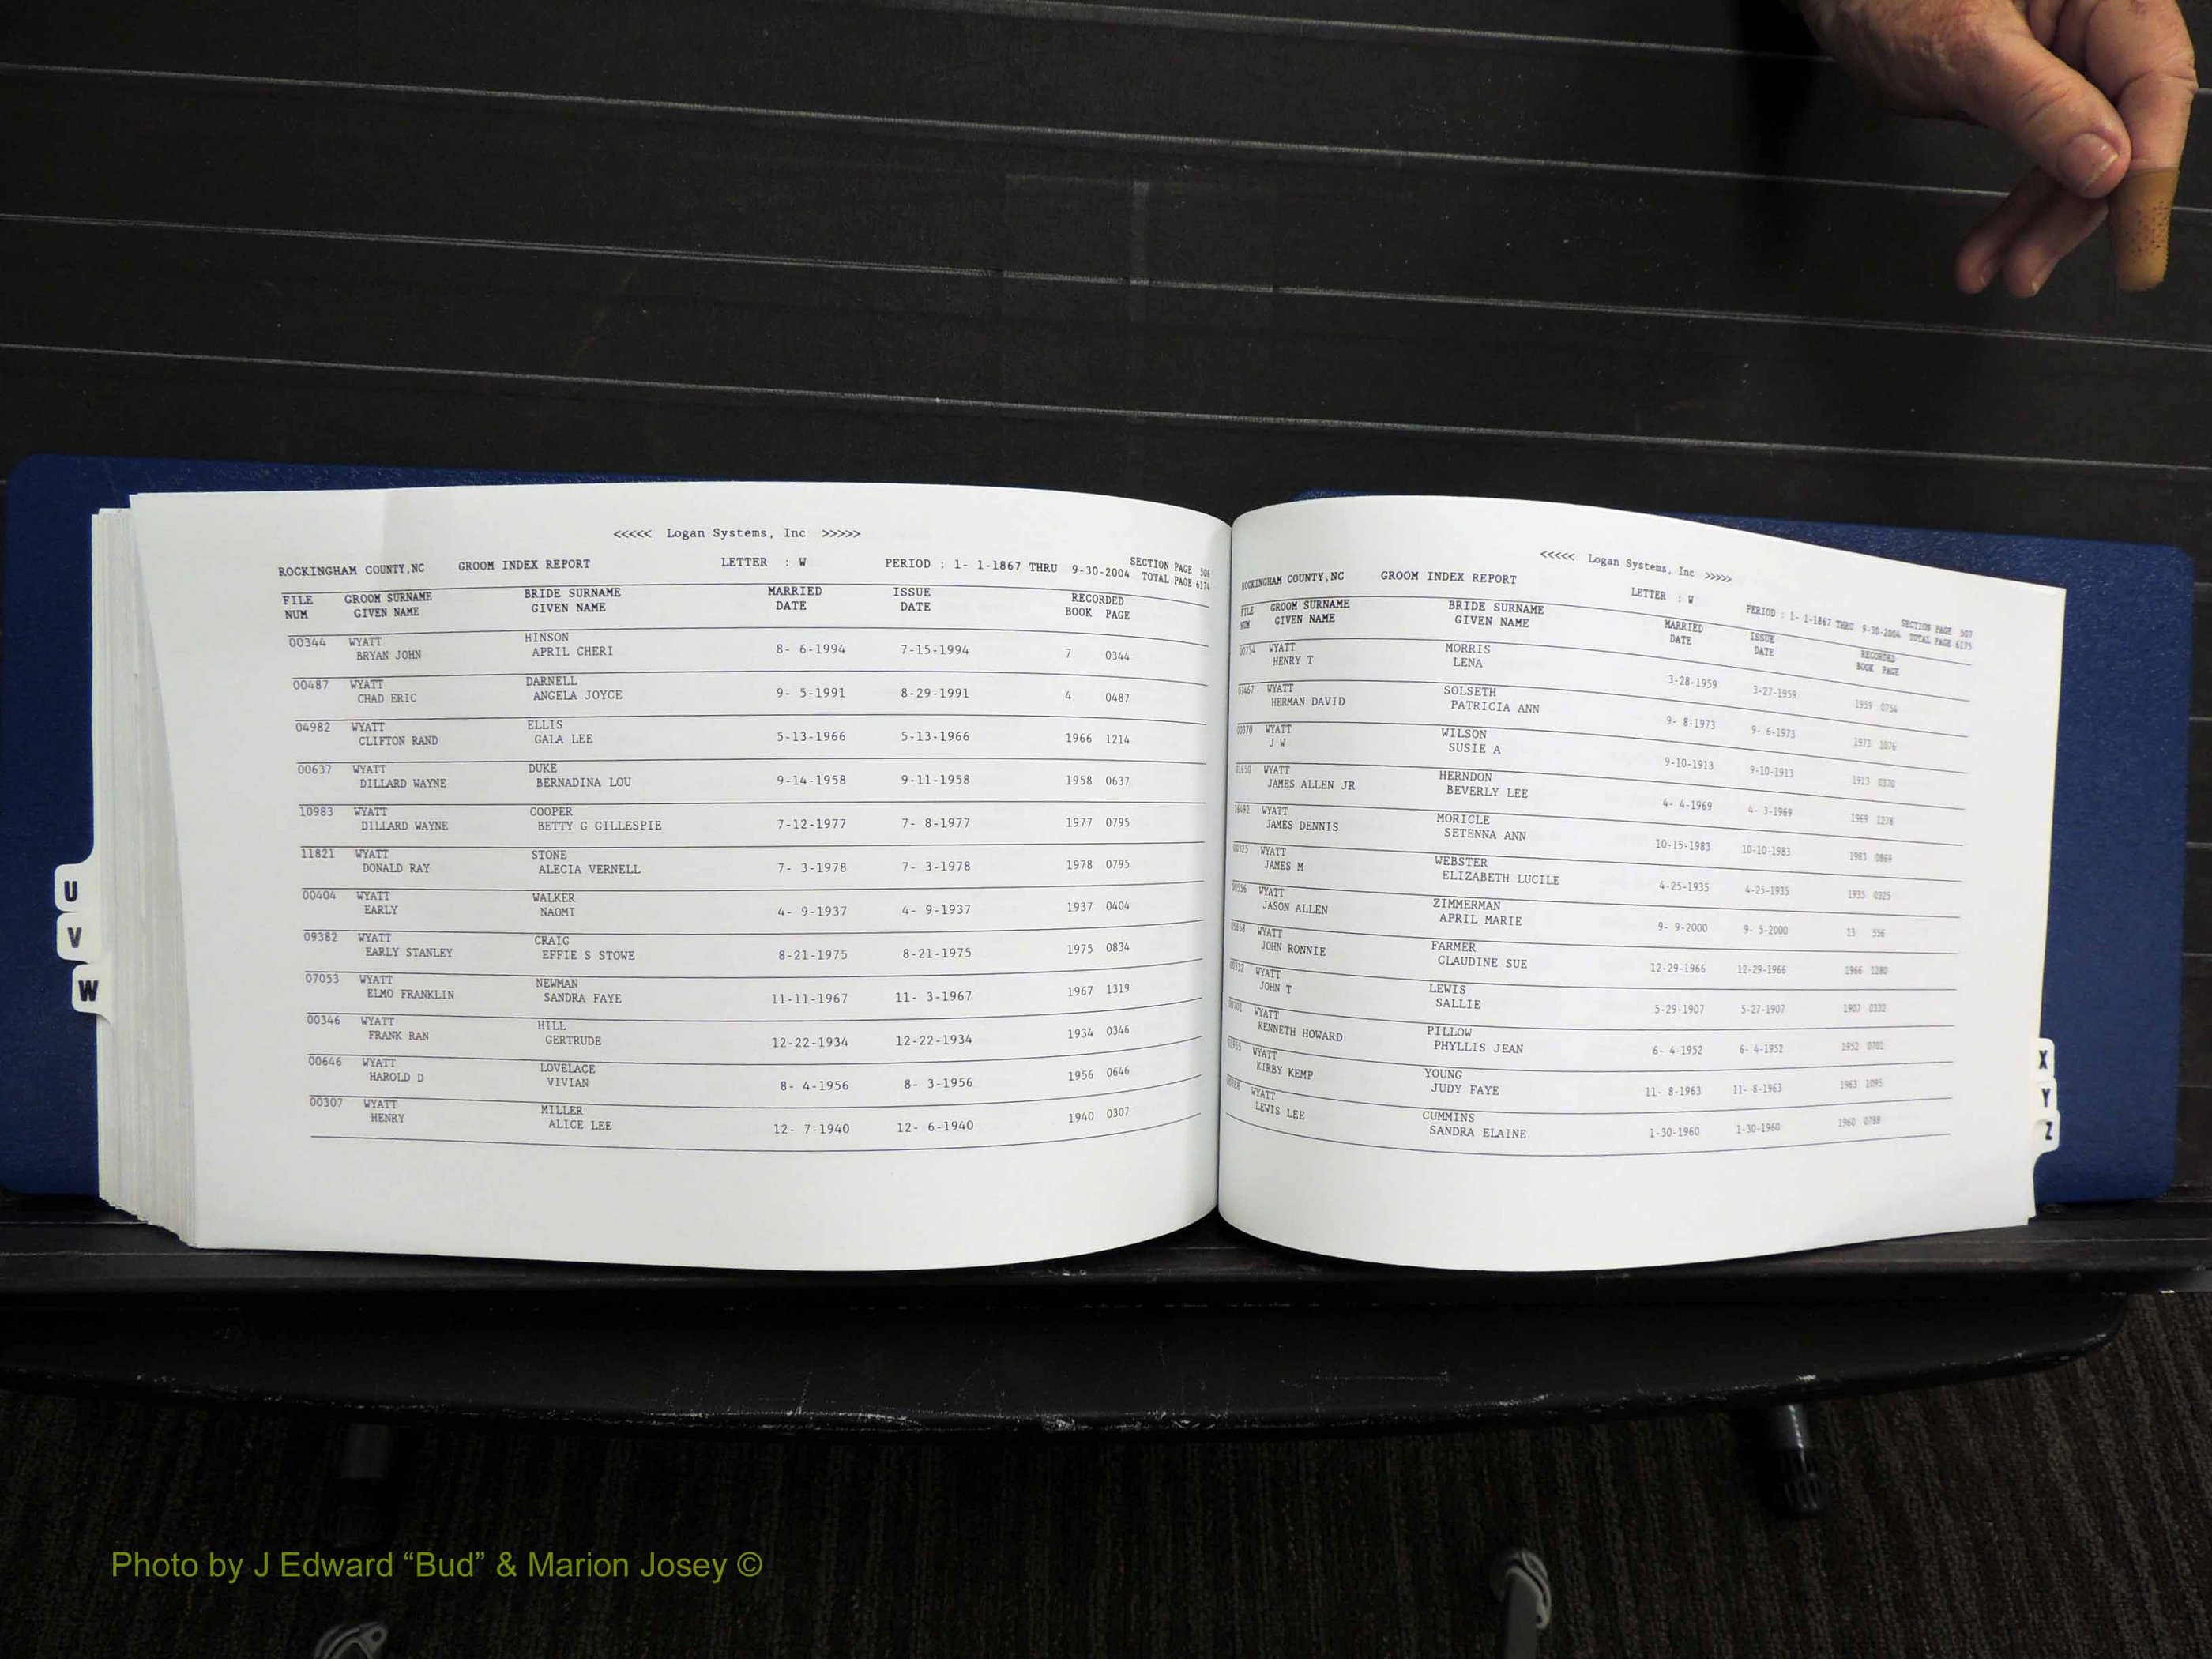 <<<<< Logan Systems, Inc >>>>>
ROCKINGHAM COUNTY,NC GROOM INDEX REPORT LETTER : W PERIOD : 1- 1-1867 THRU 9-30-2004 SECTION PAGE 506
TOTAL PAGE 6174
FILE GROOM SURNAME BRIDE SURNAME MARRIED ISSUE RECORDED
NUM GIVEN NAME GIVEN NAME DATE DATE BOOK PAGE
00344 WYATT HINSON
BRYAN JOHN APRIL CHERI 8- 6-1994 7-15-1994 7 0344
00487 WYATT DARNELL
CHAD ERIC ANGELA JOYCE 9- 5-1991 8-29-1991 4 0487
04982 WYATT ELLIS
CLIFTON RAND GALA LEE 5-13-1966 5-13-1966 1966 1214
00637 WYATT DUKE
DILLARD WAYNE BERNADINA LOU 9-14-1958 9-11-1958 1958 0637
10983 WYATT COOPER
DILLARD WAYNE BETTY G GILLESPIE 7-12-1977 7- 8-1977 1977 0795
11821 WYATT STONE
DONALD RAY ALECIA VERNELL 7- 3-1978 7- 3-1978 1978 0795
00404 WYATT WALKER
EARLY NAOMI 4- 9-1937 4- 9-1937 1937 0404
09382 WYATT CRAIG
EARLY STANLEY EFFIE S STOWE 8-21-1975 8-21-1975 1975 0834
07053 WYATT NEWMAN
ELMO FRANKLIN SANDRA FAYE 11-11-1967 11- 3-1967 1967 1319
00346 WYATT HILL
FRANK RAN GERTRUDE 12-22-1934 12-22-1934 1934 0346
00646 WYATT LOVELACE
HAROLD D VIVIAN 8- 4-1956 8- 3-1956 1956 0646
00307 WYATT MILLER
HENRY ALICE LEE 12- 7-1940 12- 6-1940 1940 0307
U
V
W
<<<<< Logan Systems, Inc >>>>>
ROCKINGHAM COUNTY,NC GROOM INDEX REPORT LETTER : W PERIOD : 1- 1-1867 THRU 9-30-2004 SECTION PAGE 507
TOTAL PAGE 6175
FILE GROOM SURNAME BRIDE SURNAME MARRIED ISSUE RECORDED
NUM GIVEN NAME GIVEN NAME DATE DATE BOOK PAGE
00754 WYATT MORRIS
HENRY T LENA 3-28-1959 3-27-1959 1959 0754
07467 WYATT SOLSETH
HERMAN DAVID PATRICIA ANN 9- 8-1973 9- 6-1973 1973 1076
00370 WYATT WILSON
J W SUSIE A 9-10-1913 9-10-1913 1913 0370
WYATT HERNDON
JAMES ALLEN JR BEVERLY LEE 4- 4-1969 4- 3-1969 1969 1278
16492 WYATT MORICLE
JAMES DENNIS SETENNA ANN 10-15-1983 10-10-1983 1983 0869
00325 WYATT WEBSTER
JAMES M ELIZABETH LUCILE 4-25-1935 4-25-1935 1935 0325
00556 WYATT ZIMMERMAN
JASON ALLEN APRIL MARIE 9- 9-2000 9- 5-2000 13 556
WYATT FARMER
JOHN RONNIE CLAUDINE SUE 12-29-1966 12-29-1966 1966 1280
00332 WYATT LEWIS
JOHN T SALLIE 5-29-1907 5-27-1907 1907 0332
00701 WYATT PILLOW
KENNETH HOWARD PHYLLIS JEAN 6- 4-1952 6- 4-1952 1952 0701
WYATT YOUNG
KIRBY KEMP JUDY FAYE 11- 8-1963 11- 8-1963 1963 1095
00788 WYATT CUMMINS
LEWIS LEE SANDRA ELAINE 1-30-1960 1-30-1960 1960 0788
X
Y
Z
Photo by J Edward “Bud” & Marion Josey ©